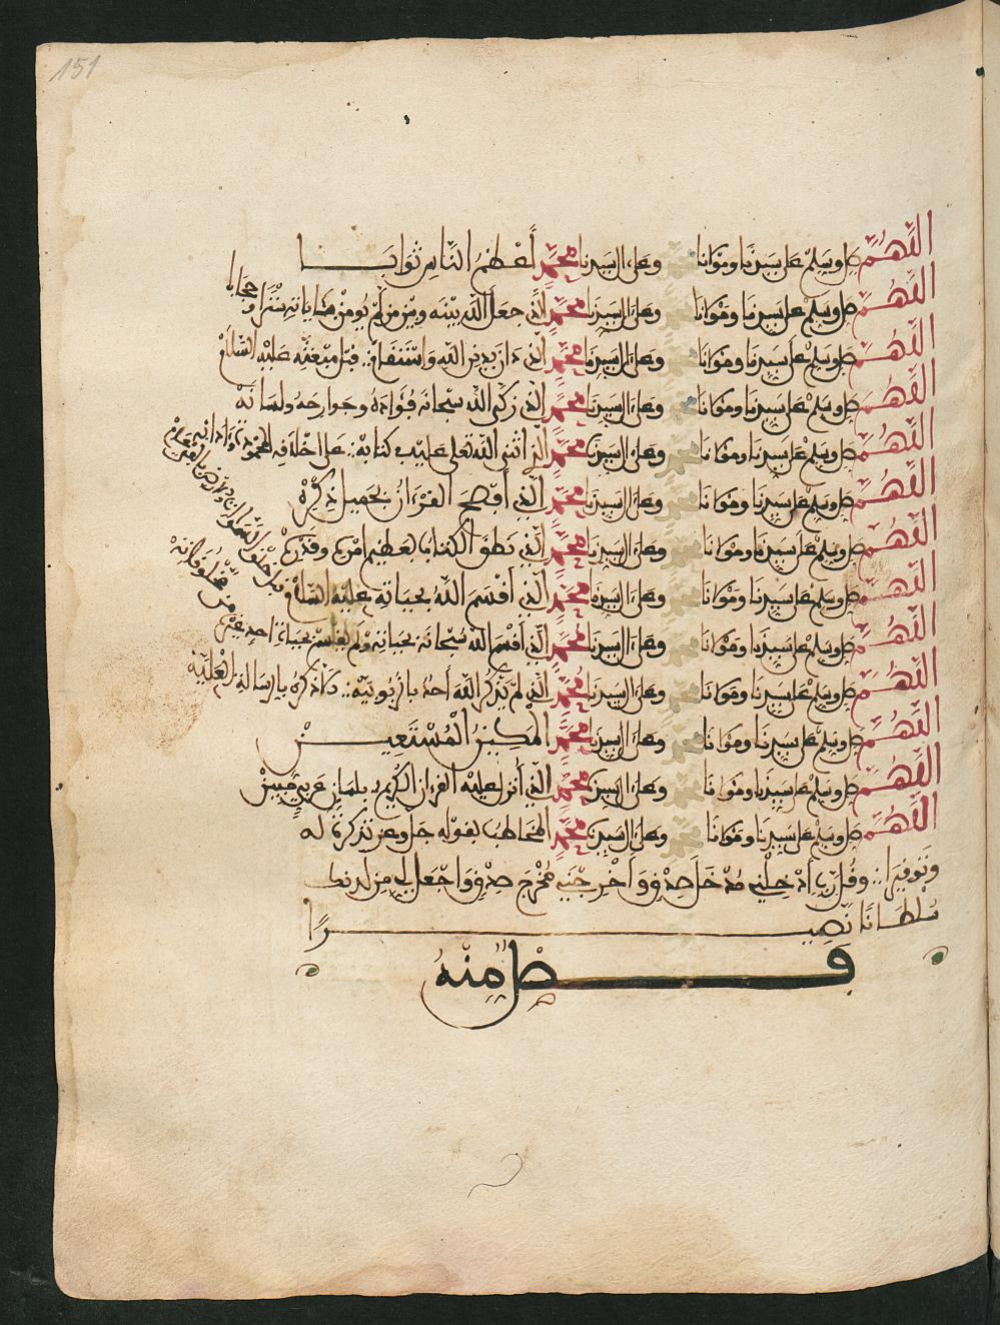 151
اللَّهُمَّ صل وسلم على سيدنا ومولانا محمد وعلى ال سيدنا محمد أَعْظَمُ النَّاسِ ثَوَابَا
اللَّهُمَّ صل وسلم على سيدنا ومولانا محمد وعلى ال سيدنا محمد الذي جعل الله بينه وبين من لم يومن سترا وحجابا
اللَّهُمَّ صل وسلم على سيدنا ومولانا محمد وعلى ال سيدنا محمد الذي دان بدين الله قبل مبعثه عليه السلام
اللَّهُمَّ صل وسلم على سيدنا ومولانا محمد وعلى ال سيدنا محمد الذي زكى الله سبحانه فؤاده وجوارحه ولسانه
اللَّهُمَّ صل وسلم على سيدنا ومولانا محمد وعلى ال سيدنا محمد الذي اثنى الله تعلى عليه في كتابه على اخلافه
اللَّهُمَّ صل وسلم على سيدنا ومولانا محمد وعلى ال سيدنا محمد الذي أفصح القرءان بجميل ذكره
اللَّهُمَّ صل وسلم على سيدنا ومولانا محمد وعلى ال سيدنا محمد الذي نطق الكتاب بعظيم امره وقدره
اللَّهُمَّ صل وسلم على سيدنا ومولانا محمد وعلى ال سيدنا محمد الذي أقسم الله بحياته عليه السلام
اللَّهُمَّ صل وسلم على سيدنا ومولانا محمد وعلى ال سيدنا محمد الذي أقسم الله سبحانه بحياته ولم يقسم بحياة احد غيره
اللَّهُمَّ صل وسلم على سيدنا ومولانا محمد وعلى ال سيدنا محمد الذي لم يذكر الله أحد بالربوبية ذكره بالرسالة العلية
اللَّهُمَّ صل وسلم على سيدنا ومولانا محمد وعلى ال سيدنا محمد المكين المستعين
اللَّهُمَّ صل وسلم على سيدنا ومولانا محمد وعلى ال سيدنا محمد الذي أنزل عليه القرءان الكريم بلسان عربي مبين
اللَّهُمَّ صل وسلم على سيدنا ومولانا محمد وعلى ال سيدنا محمد المخاطب بقوله جل وعز تذكرة له
وتوفيرا وقل رب أدخلني مدخل صدق وأخرجني مخرج صدق واجعل لي من لدنك
سلطانا نصيرا
فصل منه